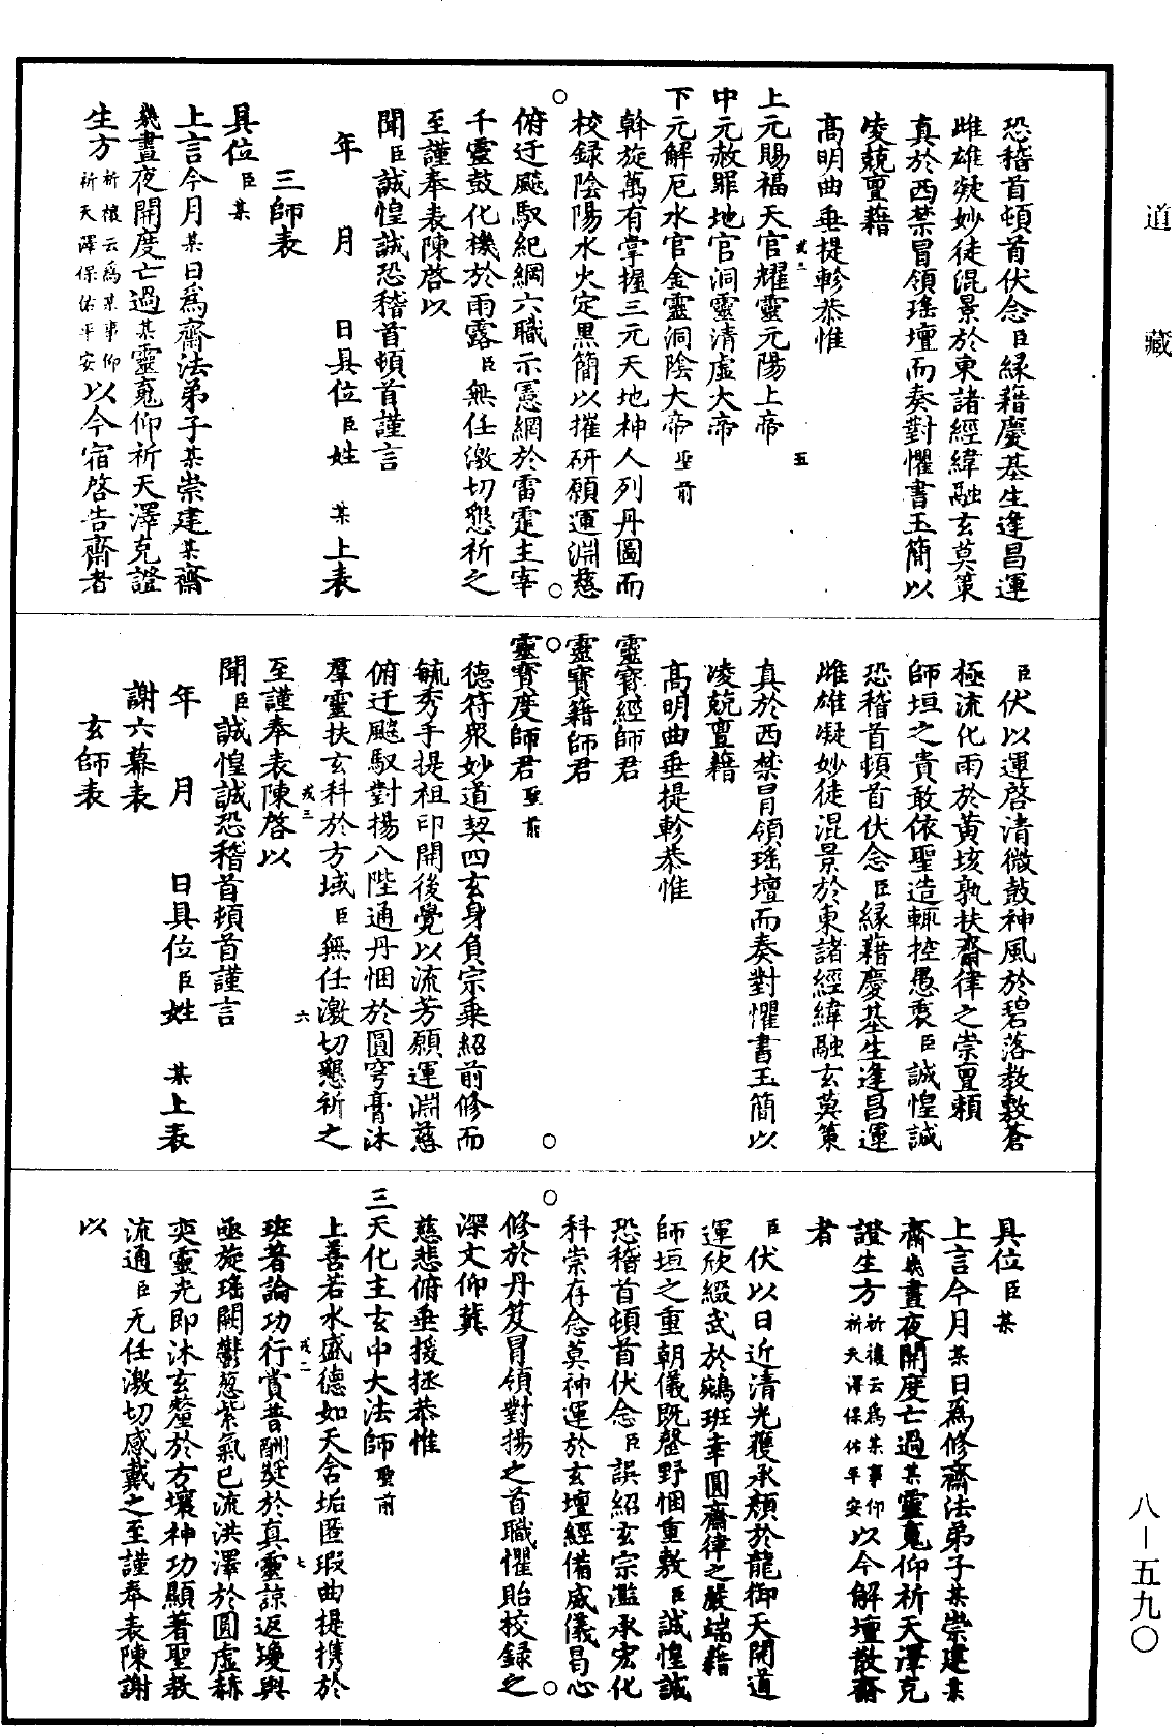 道藏
恐稽首頓首伏念臣緣籍慶基生逢昌運
雌雄凝妙徒混景於東諸經緯融玄莫策
真於西禁冒領瑤壇而奏對懼書玉簡以
凌兢亶藉
高明曲垂提軫恭惟
上元賜福天官耀靈元陽上帝
中元赦罪地官洞靈清虛大帝
下元解厄水官金靈洞陰大帝聖前
斡旋萬有掌握三元天地神人列丹圖而
校録陰陽水火定黒簡以摧研願運淵慈
俯迂飈馭紀綱六職示憲網於雷霆主宰
千靈鼓化機於雨露臣無任激切懇祈之
至謹奉表陳啓以
聞臣誠惶誠恐稽首頓首謹言
年 月 日具位臣姓 某上表
三師表
具位臣某
上言今月某日爲齋法弟子某崇建某齋
幾晝夜開度亡過某靈䰟仰祈天澤克證
生方祈禳云爲某事仰祈天澤保佑平安以今宿啓告齋者
臣伏以運啓清微鼓神風於碧落教敷蒼
極流化雨於黃垓孰扶齋律之崇亶賴
師垣之貴敢依聖造輒控愚衷臣誠惶誠
恐稽首頓首伏念臣緣藉慶基生逢昌運
雌雄凝妙徒混景於東諸經緯融玄莫策
真於西禁冒領瑤壇而奏對懼書玉簡以
凌兢亶藉
高明曲垂提軫恭惟
靈寶經師君
靈寶籍師君
靈寶度師君聖前
德符衆妙道契四玄身負宗乗紹前修而
毓秀手提祖印開後覺以流芳願運淵慈
俯迂飈馭對揚八陛通丹悃於圓穹膏沐
羣靈扶玄科於方域臣無任激切懇祈之
至謹奉表陳啓以
聞臣誠惶誠恐稽首頓首謹言
年 月 日具位臣姓 某上表
謝六幕表
玄師表
具位臣某
上言今月某日爲修齋法弟子某崇建某
齋幾晝夜開度亡過某靈䰟仰祈天澤克
證生方祈禳云爲某事仰祈天澤保佑平安以今解壇散齋
者
臣伏以日近清光獲承顏於龍御天開道
運欣綴武於鵷班幸圓齋律之嚴端藉
師垣之重朝儀既罄野悃重敷臣誠惶誠
恐稽首頓首伏念臣誤紹玄宗濫承宏化
科崇存念莫神運於玄壇經備威儀曷心
修於丹笈冒領對揚之首職懼貽校録之
深文仰冀
慈悲俯垂援拯恭惟
三天化主玄中大法師聖前
上善若水盛德如天含垢匿瑕曲提携於
班著論功行賞普酬奨於真靈諒返瓊輿
亟旋瑤闕鬱葱紫氣已流洪澤於圓虛赫
奕靈光即沐玄釐於方壤神功顯著聖教
流通臣无任激切感戴之至謹奉表陳謝
以
八—五九〇